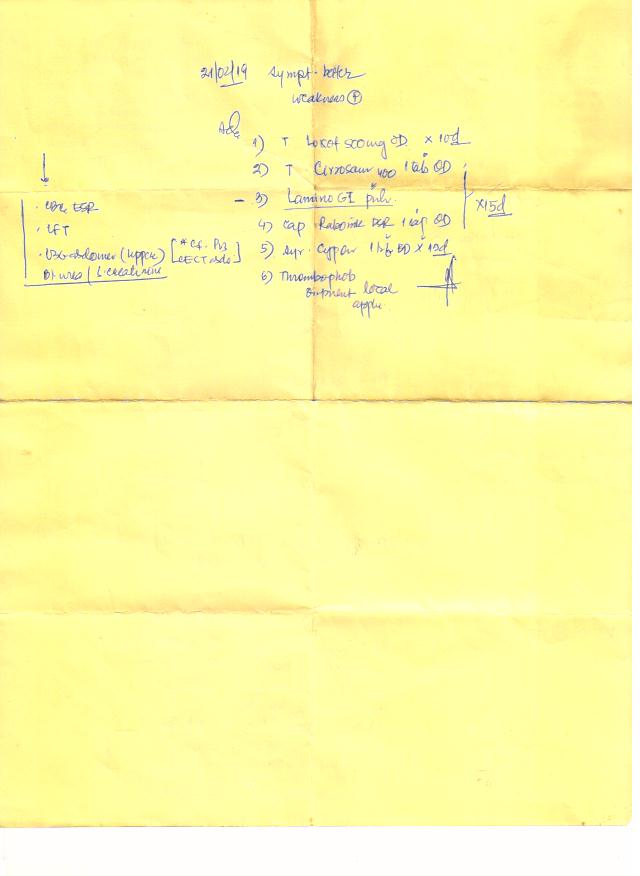 21/02/19 Sympt. better
weakness (+)
Adv
1) T Loxof 500mg OD × 10d
2) T 400 1 tab OD
3) Lamino GI pulv.
× 15d
4) Cap. DSR 1 cap OD
5) Syr. Cypon BD × 15d
6) Thrombophob
ointment local
applic
↓
. CBC ESR
. LFT
. USG abdomen (upper)
Bl urea / S. creatinine